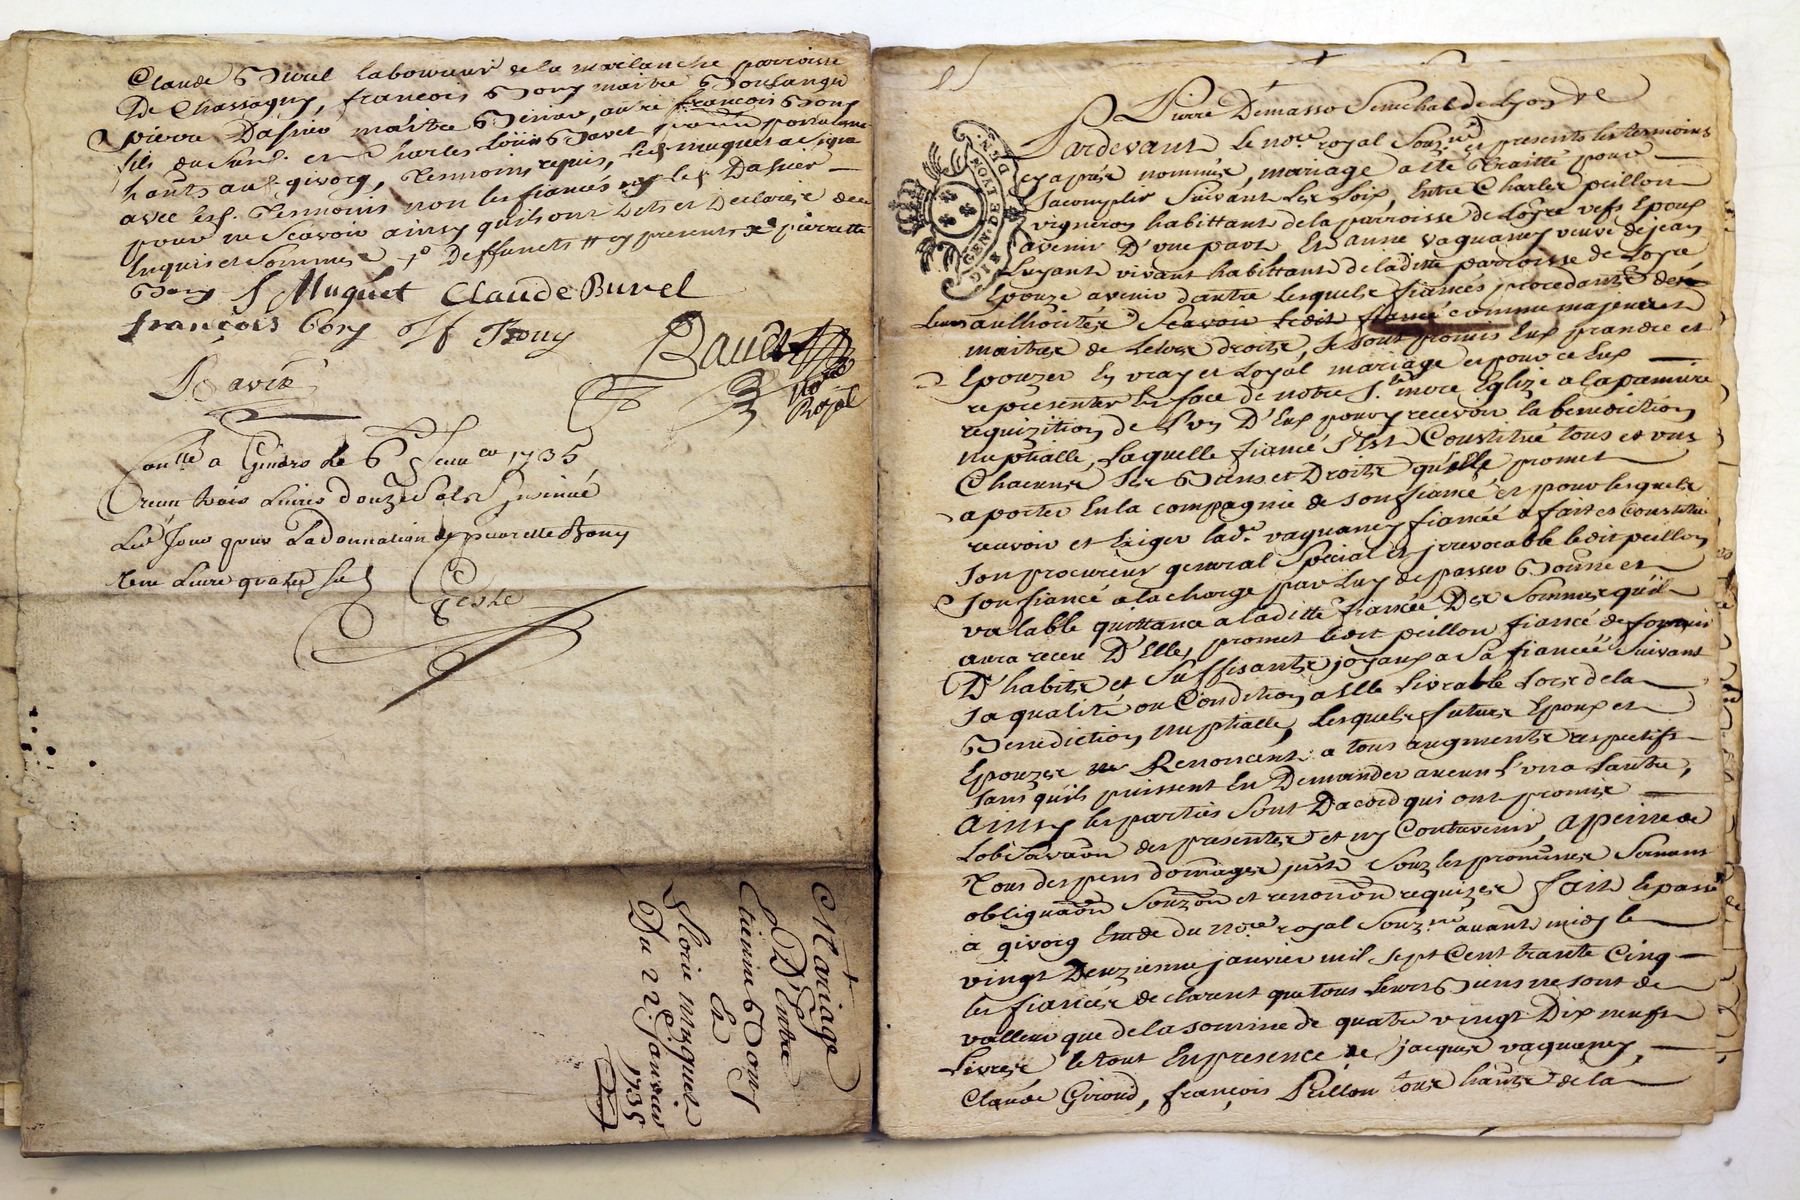 Claude Burel laboureur de la marlanche parroisse
De Chassagny, francois Bony maitre Boulanger
pierre Dasnier maitre autre francois Bony
fils du Susd. et Charles Louis Bavet
hants au d. givorq, Temoins requis, led. muguet a signé
avec lesd. Temoins non les fiancés ny led. Dasnier
pour ne Scavoir ainsy quils ont Dits et Declaré de ce
Enquis et Sommés Deffunets cy presents pierrette
Bony S Muguet Claude Burel
françois Bony Bony
Bavet
Bavet
No.re
Royal
Con.lle a Givors le 6 1735
receu trois Livres douze Sols Insinué
Led Jour pour La donnation de pierrette Bony
Receu Livre quatre Sols
Geste
Mariage
D'Entre
Etienne Bony
Et
Florie Muguet
Du 22 Janvier
1735
GEN. DE LYON
Pierre Demasso Senechal de Lyon
Pardevant le no.re royal Souz.né et presents les temoins
cy apres nommés, mariage a été Traitté pour
Sacomplir Suivant Les Loix, Entre Charles peillon
vigneron habittant de la parroisse de Loyre vefs Epoux
avenir D'une part Et anne vaganay veuve de jean
Luyant vivant habittant de laditte parroisse de Loyre
Epouze avenir dautre Lesquels fiancés procedants de
Leurs authorités Scavoir ledit fiancé comme majeurs et
maitres de Leurs droits, Se sont promis Eux prandre et
Epouzer En vray et Loyal mariage et pour ce Eux
representer En face de notre S.te mere Eglize a la pamiere
requizition de L'un D'Eux pour y recevoir la benediction
Nuptialle, Laquelle fiancé S'est Constitué tous et uns
Chacuns Ses Biens et Droits qu'elle promet
aporter En la compagnie de son fiancé et pour lesquels
recevoir et Exiger lad.e vaganay fiancée a fait et Constitué
Son procureur general Special et jrrevocable ledit peillon
Son fiancé a la charge par Luy de passer Bonne et
valable quittance a laditte fiancée Des Sommes qu'il
aura receu D'Elle, promet ledit peillon fiancé de fournir
D'habits et Suffisants joyaux a Sa fiancée Suivant
Sa qualité ou Condition a Elle Livrable Lors de la
Benediction Nuptialle, Lesquels futurs Epoux et
Epouze Renoncent a tous augments respectifs
Sans qu'ils puissent En Demander aucun L'un a Lautre,
Ainsy les parties Sont Dacord qui ont promis
Lobservaon des presentes et ny Contrevenir, A peine de
Tous despens domages justs Souz les promisses Serment
obligaôn Souzôn et renonôn requizes fait Et passé
a givorq Etude du no.re royal Souz.né avant midy le
vingt Deuzieme janvier mil sept Cent trante Cinq
les fiancés declarent que tous Leurs Biens ne sont de
valleur que de la somme de quatre vingt Dix neuf
Livres le tout En presence de jacques vaganay,
Claude Giroud, françois Peillon tous hants de la